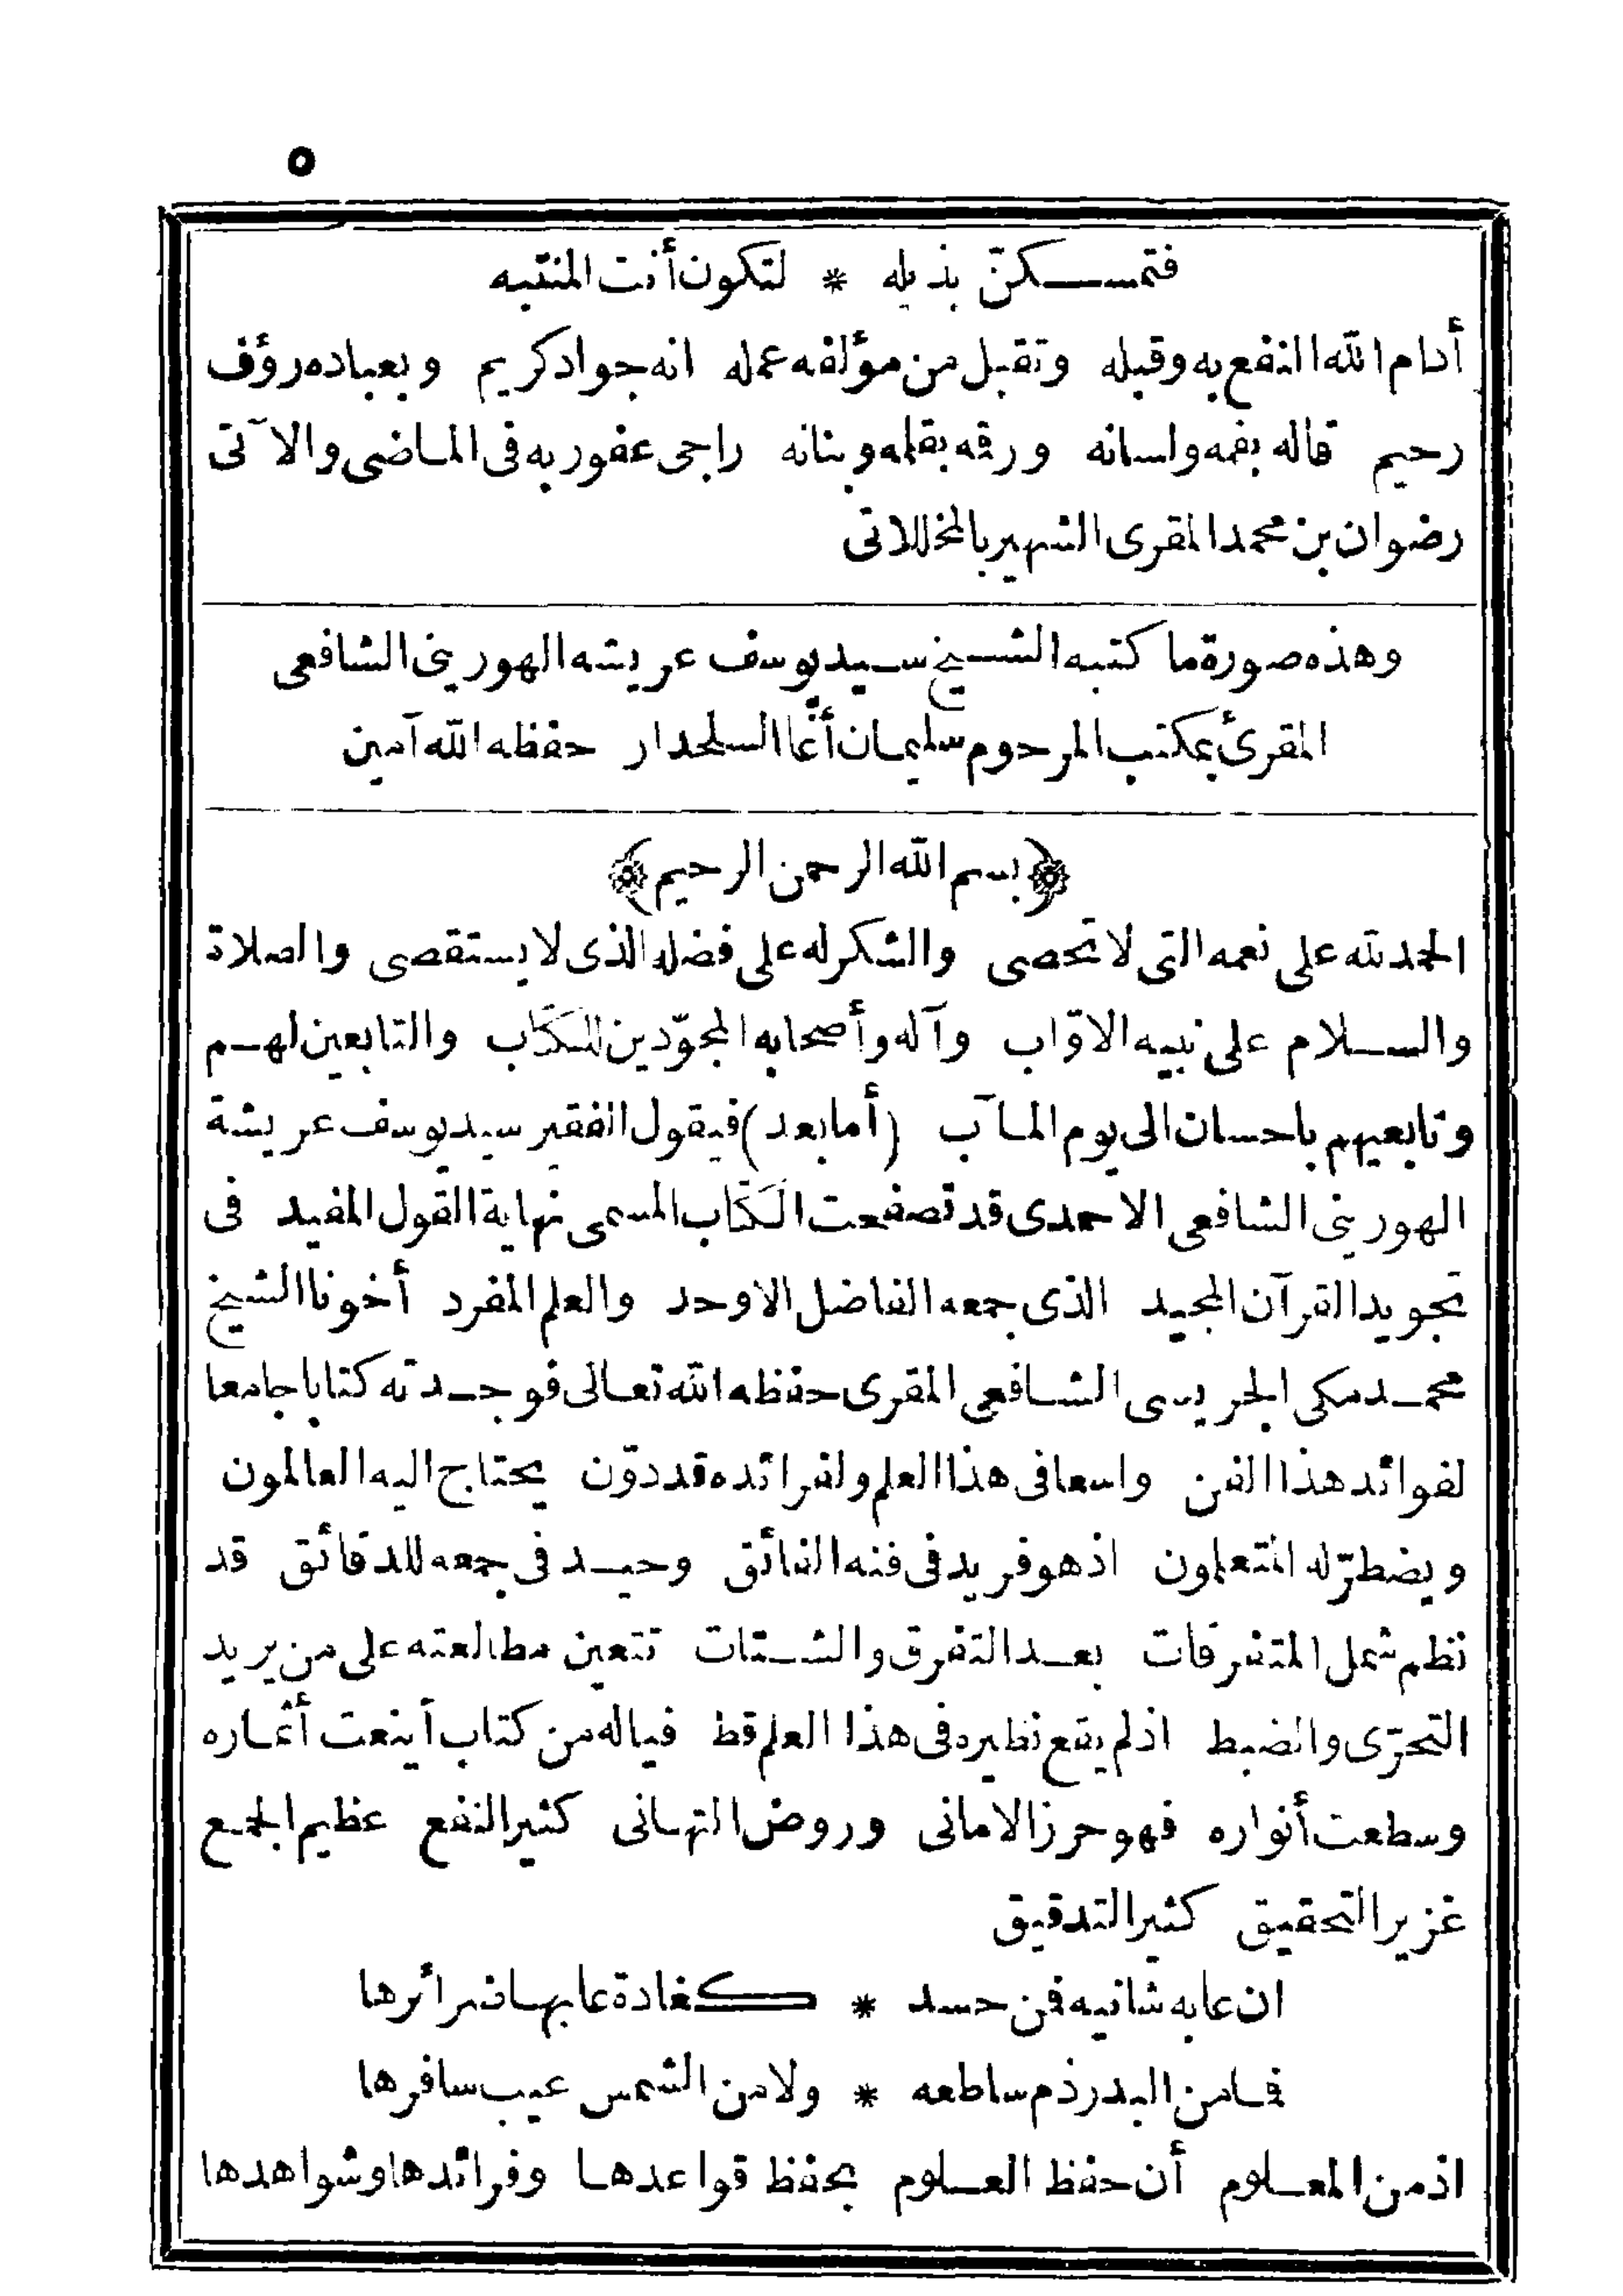 ٥
فتمسكنّ بذيله * لتكون أنت المنتبه
أدام الله النفع به وقبله وتقبل من مؤلفه عمله انه جواد كريم وبعباده رؤف
رحيم قاله بفمه ولسانه ورقمه بقلمه وبنانه راجى عفو ربه فى الماضى والآتى
رضوان بن محمد المقرى الشهير بالمخللاتى
وهذه صورة ما كتبه الشيخ سيد يوسف عريشه الهورينى الشافعى
المقرئ بمكتب المرحوم سليمان أغا السلحدار حفظه الله آمين
﴿بسم الله الرحمن الرحيم﴾
الحمد لله على نعمه التى لا تحصى والشكر له على فضله الذى لا يستقصى والصلاة
والسلام على نبيه الاوّاب وآله وأصحابه المجوّدين للكتاب والتابعين لهم
وتابعيهم باحسان الى يوم المآب (أما بعد) فيقول الفقير سيد يوسف عريشة
الهورينى الشافعى الاحمدى قد تصفحت الكتاب المسمى نهاية القول المفيد فى
تجويد القرآن المجيد الذى جمعه الفاضل الاوحد والعلم المفرد أخونا الشيخ
محمد مكى الجريسى الشافعى المقرى حفظه الله تعالى فوجدته كتابا جامعا
لفوائد هذا الفن واسعا فى هذا العلم ولفرائده قد دوّن يحتاج اليه العالمون
ويضطرّ له المتعلمون اذ هو فريد فى فنه الفائق وحيد فى جمعه للدقائق قد
نظم شمل المتفرقات بعد التفرق والشتات تتعين مطالعته على من يريد
التحرّى والضبط اذ لم يقع نظيره فى هذا العلم قط فياله من كتاب أينعت أثماره
وسطعت أنواره فهو حرز الامانى وروض التهانى كثير النفع عظيم الجمع
غزير التحقيق كثير التدقيق
ان عابه شانيه فمن حسد * كغادة عابها ضرائرها
فما من البدر ذم ساطعه * ولا من الشمس عيب سافرها
اذ من المعلوم أن حفظ العلوم بحفظ قواعدها وفرائدها وشواهدها